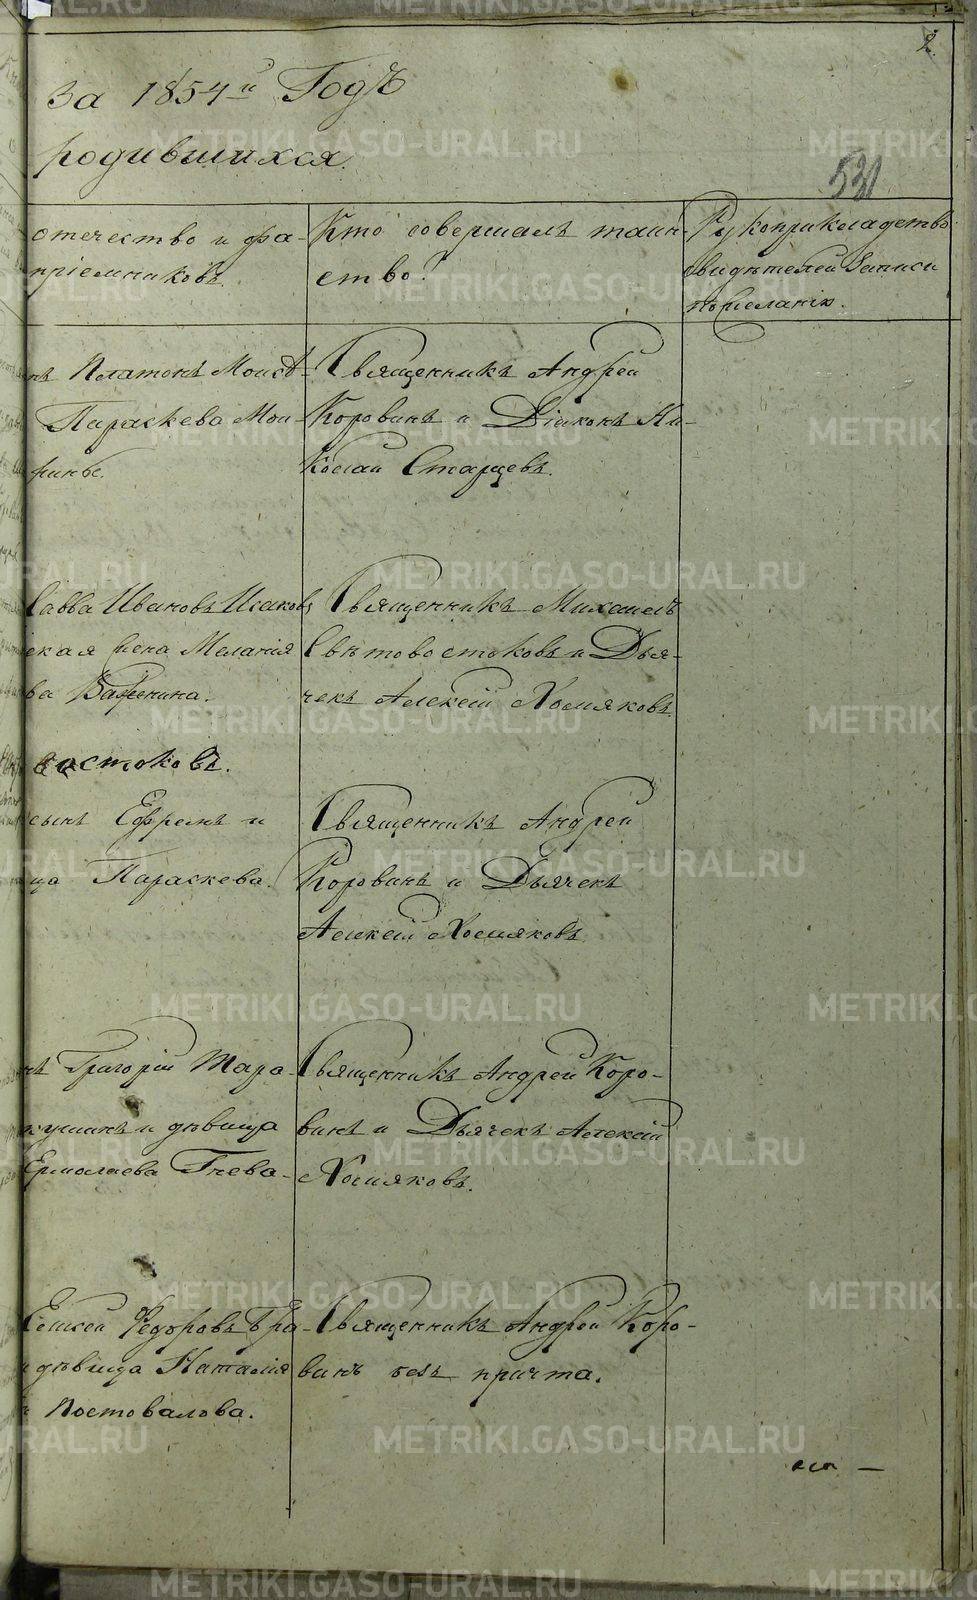 2.
За 1854й Годъ
родившихся.
531
отечество и фа-
пріемниковъ.
Кто совершалъ таин-
ство?
Рукоприкладство
свидѣтелей записи
по желанію.
нъ Платонъ Моисѣ-
Параскева Мои-
рины.
Священникъ Андрей
Коровинъ и Діаконъ Ни-
колай Старцевъ.
Савва Ивановъ Исаковъ
ская жена Меланія
ва Важенина.
Священникъ Михаилъ
Свѣтовостоковъ и Дья-
чекъ Алексій Хомяковъ
востоковъ.
сынъ Ефремъ и
ца Параскева.
Священникъ Андрей
Коровинъ и Дьячекъ
Алексій Хомяковъ
нъ Григорій Тара-
кушинъ и дѣвица
Ермолаева Гнева-
Священникъ Андрей Коро-
винъ и Дьячекъ Алексій
Хомяковъ.
Алексей Федоровъ Бра-
и дѣвица Наталія
Постовалова.
Священникъ Андрей Коро-
винъ безъ причта.
METRIKI.GASO-URAL.RU